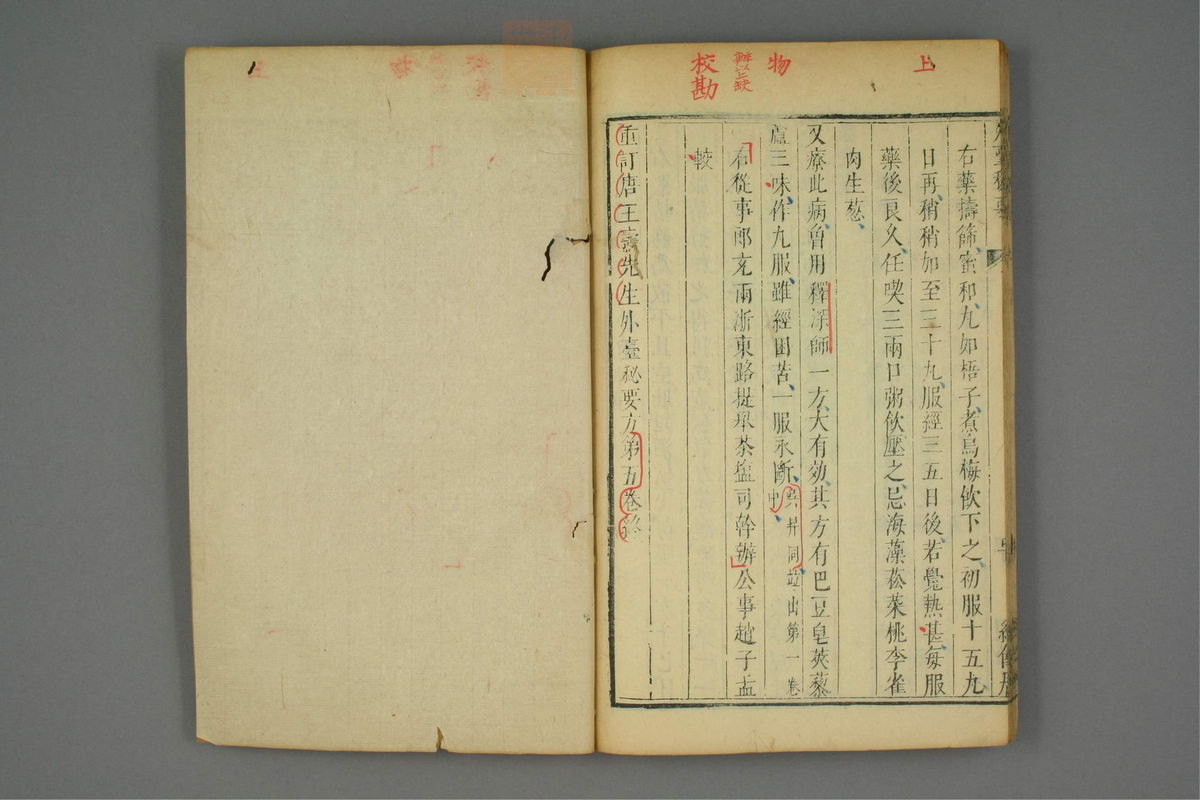 上
物
辨以上缺
校勘
右藥擣篩蜜和丸如梧子煮烏梅飲下之初服十五丸
日再稍稍加至三十丸服經三五日後若覺熱甚每服
藥後良久任喫三兩口粥飲壓之忌海藻菘菜桃李雀
肉生葱
又療此病曾用釋深師一方大有効其方有巴豆皂莢藜
蘆三味作丸服雖經困苦一服永斷吳昇同並出第一卷
中
右從事郎充兩浙東路提舉茶鹽司幹辦公事趙子孟
較
重訂唐王燾先生外臺秘要方第五卷終